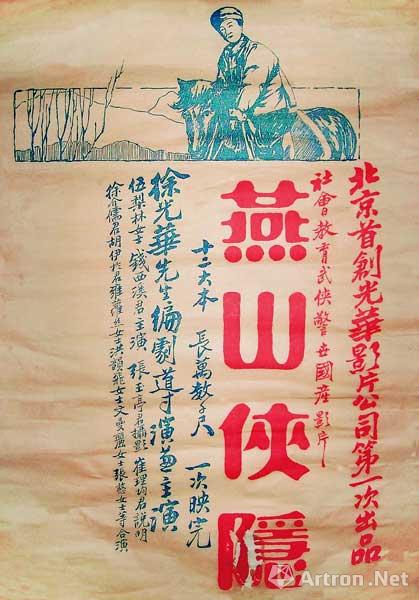 北京首創光華影片公司第一次出品
社會教育武俠警世國產影片
燕山俠隱
十二大本 長萬數千尺 一次映完
徐光華先生編劇導演兼主演
伍梨林女士 錢西溪君主演 張玉亭君攝影 崔理均君說明
徐介儒君胡伊君雅蘿絲女士洪韻女士文曼女士張慈女士等合演
Artron.Net